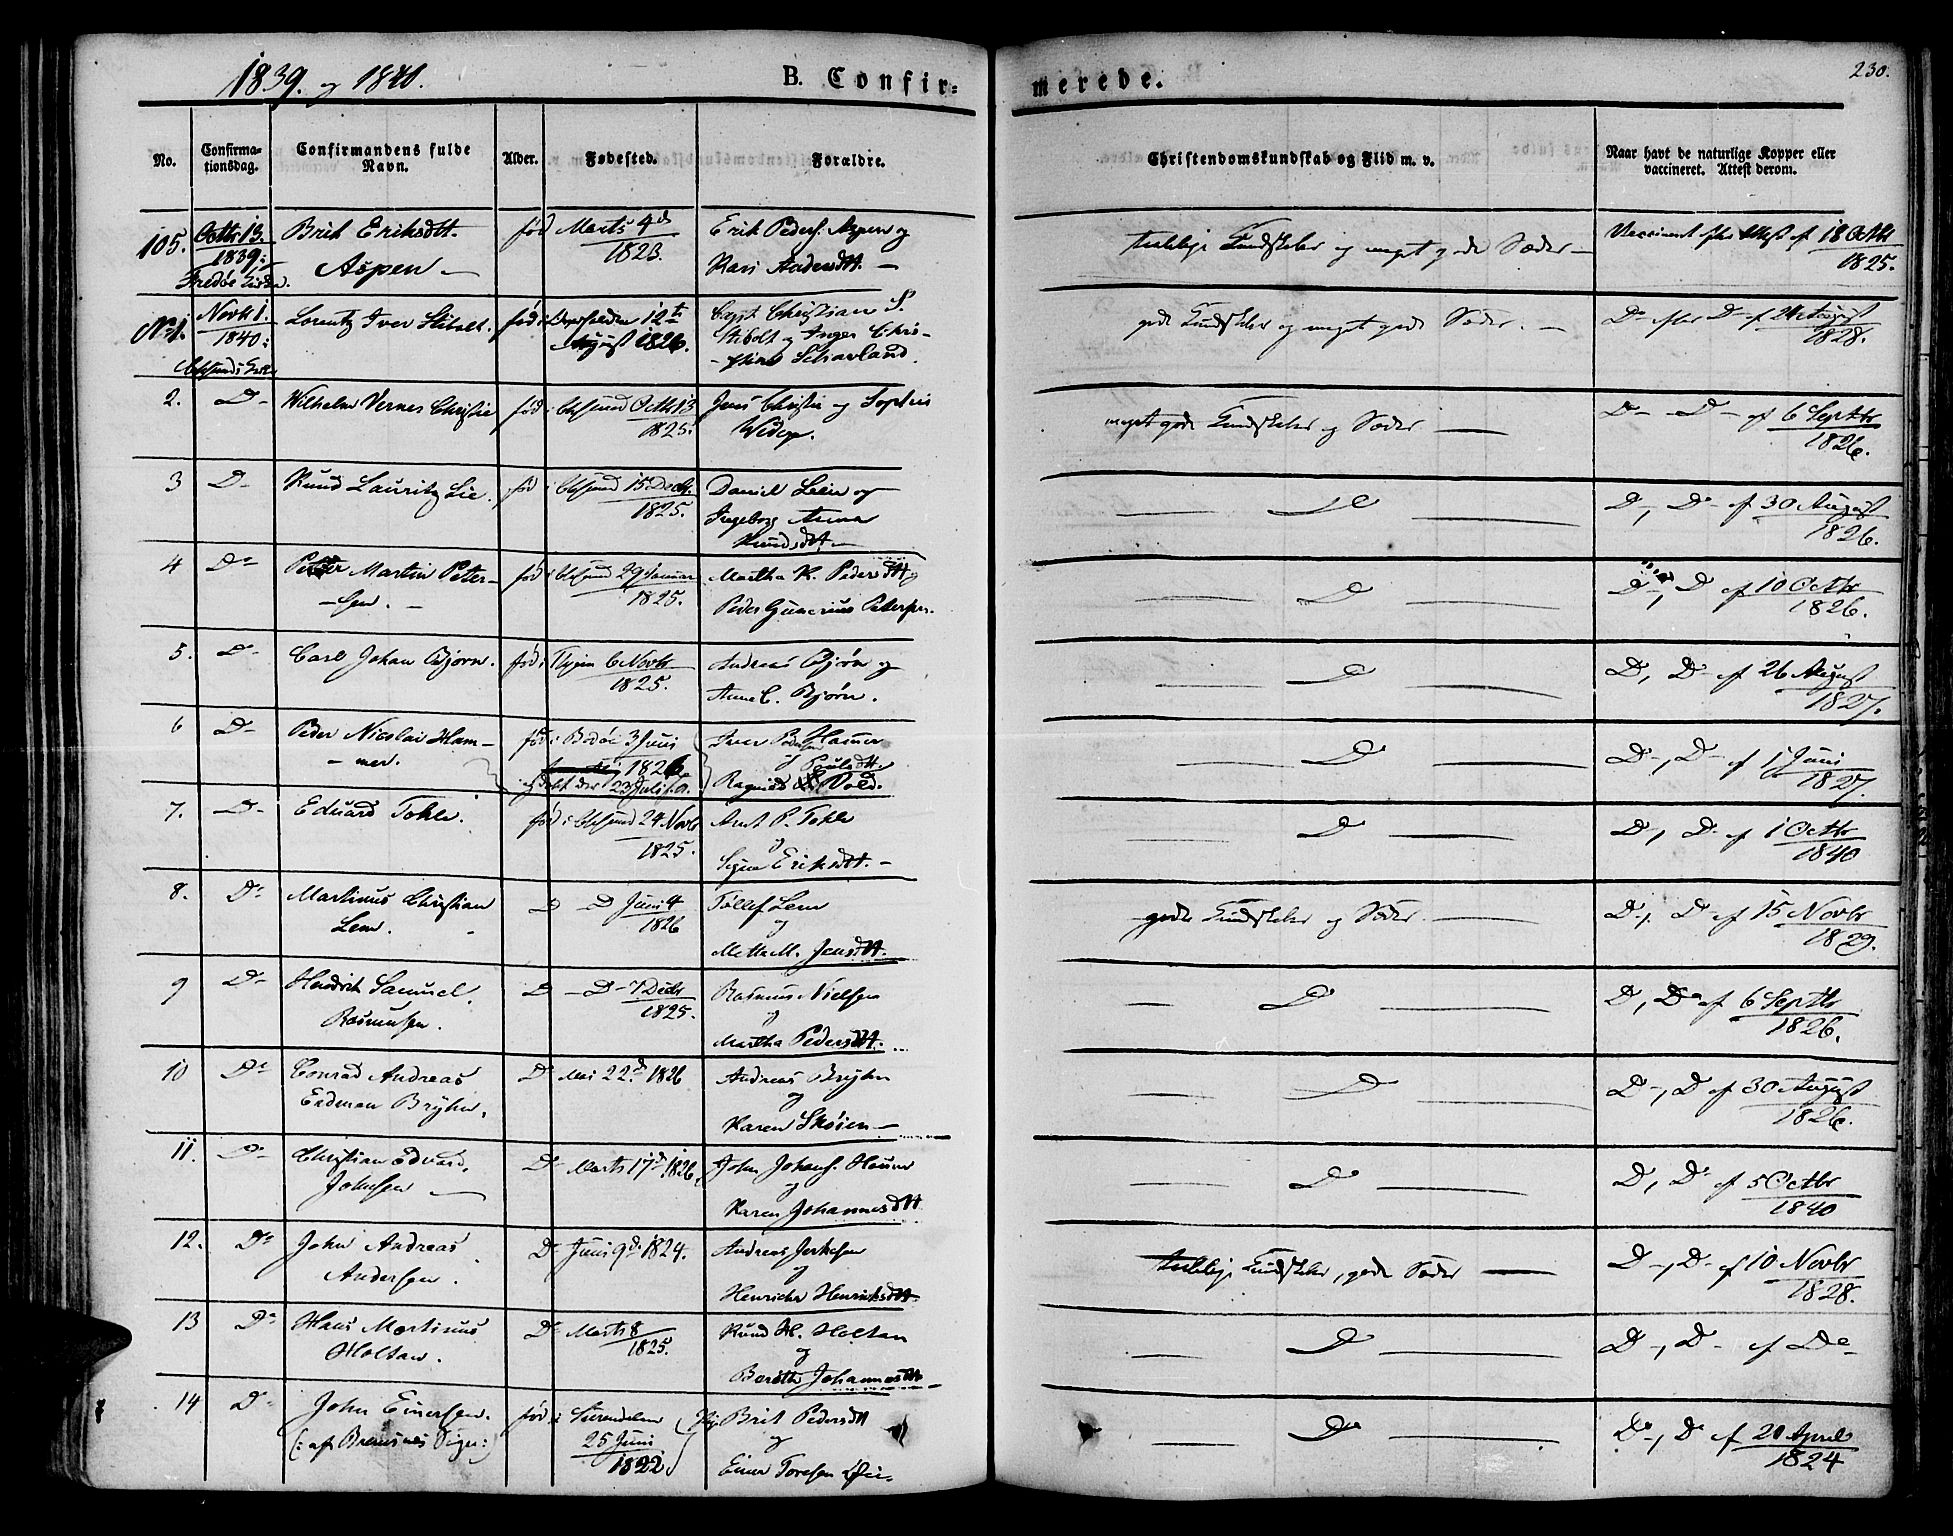 1839. og 1840.
B. Confir=
merede.
230.
No.
Confirma-
tionsdag.
Confirmandens fulde
Navn.
Alder.
Fødested.
Forældre.
Christendomskundskab og Flid m. v.
Naar havt de naturlige Kopper eller
vaccineret. Attest derom.
105. Octbr 13. Brit Eriksdtt. fød Marts 4de Erik Peders. Aspen og
1839: Aspen 1823. Kari Andersdtt.
Fredøe Kirke.
taalelige Kundskaber og meget gode Sæder
Vaccineret efter Attest af 18 Octbr
1825.
No 1. Novbr 1. Lorentz Iver Stibolt. fød i 12te Capt. Christian S.
1840: August 1826. Stibolt og Inger Chri-
-stine Schavland.
gode Kundskaber og meget gode Sæder.
Do efter Do af 24 August
1828.
2. Do Wilhelm Vernes Christie fød i Chrsund Octbr 13 Jens Christie og Sophie
1825.
meget gode Kundskaber og Sæder
Do - Do - af 6 Septbr
1826.
3 Do Knud Lauritz Lie. fød i Chrsund 15 Decbr. Daniel Leen og
1825. Ingeborg Anna
Knudsdtt.
Do
Do, Do af 30 August
1826.
4 Do Peter Martin Peter- fød i Chrsund 29 Januar Martha K. Pedersdtt og
-sen. 1825. Peder Gunerius Petersen.
Do
Do, Do af 10 Octbr
1826.
5. Do Carl Johan Bjørn. fød i 6 Novbr Andreas Bjørn og
1825. Anne C. Bjørn.
Do
Do, Do af 26 August
1827.
6 Do Peder Nicolai Ham- fød i Bodøe 3 Juni Iver Pedersen Hamer
-mer. 1826 og Paulsdtt.
døbt der 23 Juli s. A. Ragnild Vold.
Do
Do, Do af 1 Juni
1827.
7. Do Eduard Tohle. fød i Chrsund 24 Novbr Arnt P. Tohle
1825. og
Eriksdtt.
Do
Do, Do af 1 Octbr
1840
8. Do Martinus Christian Do - Do Juni 4 Tollef Lem
Lem. 1826 og
Mette M. Jensdtt.
gode Kundskaber og Sæder.
Do, Do af 15 Novbr
1829.
9 Do Hendrik Samuel Do - Do 7 Decbr Rasmus Nielsen
Rasmussen. 1825. og
Martha Pedersdtt.
Do
Do, Do af 6 Septbr
1826.
10 Do Conrad Andreas Do Mai 22de 1826 Andreas Bryhn
Erdman Bryhn. og
Karen Skøien
Do
Do, Do af 30 August
1826.
11. Do Christian Edvard Do Marts 17de 1826 John Johans.
Johnsen og
Karen Johannesdtt
Do
Do, Do af 5 Octbr
1840
12. Do John Andreas Do Juni 9de 1824. Andreas
Andersen. og
Henrichsdtt.
taalelige Kundskaber, gode Sæder
Do, Do af 10 Novbr
1828.
13 Do Hans Martinus Do Marts 8 Knud H. Holtan
Holtan. 1825. og
Berethe Johannesdtt
Do
Do, Do af Do
14 Do John Einersen. fød i Surendalen Pige Brit Pedersdtt
(: af Bremsnes Sogn:) 25 Juni og
1822 Einer Toresen Øie
Do
Do, Do af 20 April
1824